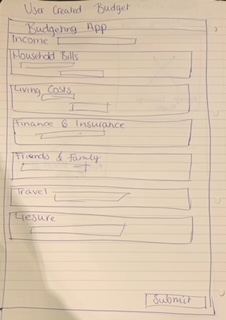 User Created Budget
Budgeting App
Income
Household Bills
Living Costs
Finance & Insurance
Friends & Family
Travel
Liesure
Submit